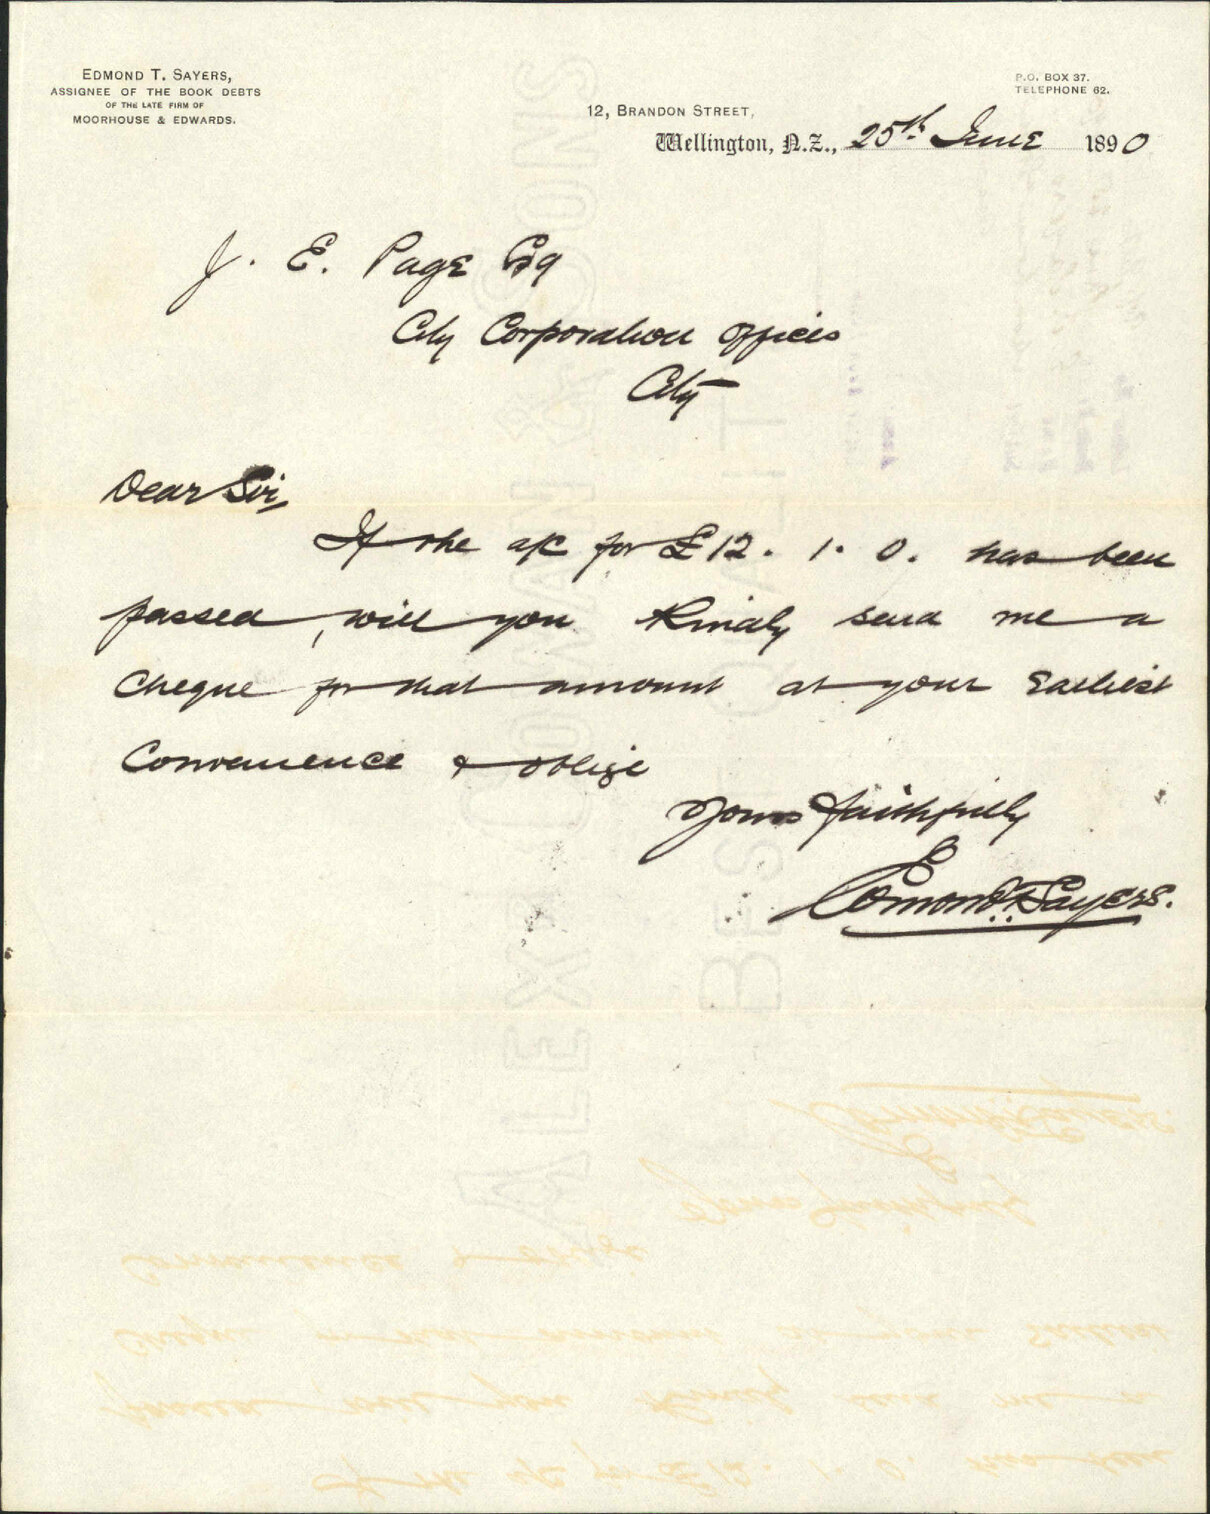 EDMOND T. SAYERS,
ASSIGNEE OF THE BOOK DEBTS
OF THE LATE FIRM OF
MOORHOUSE & EDWARDS.
P.O. BOX 37.
TELEPHONE 62.
12, BRANDON STREET,
Wellington, N.Z., 25th June 1890
J. E. Page Esq
City Corporation Offices
City
Dear Sir,
If the a/c for £12. 1. 0. has been
passed, will you kindly send me a
cheque for that amount at your Earliest
Convenience & oblige
Yours faithfully
Edmond T. Sayers.
ALEX COWAN & SONS